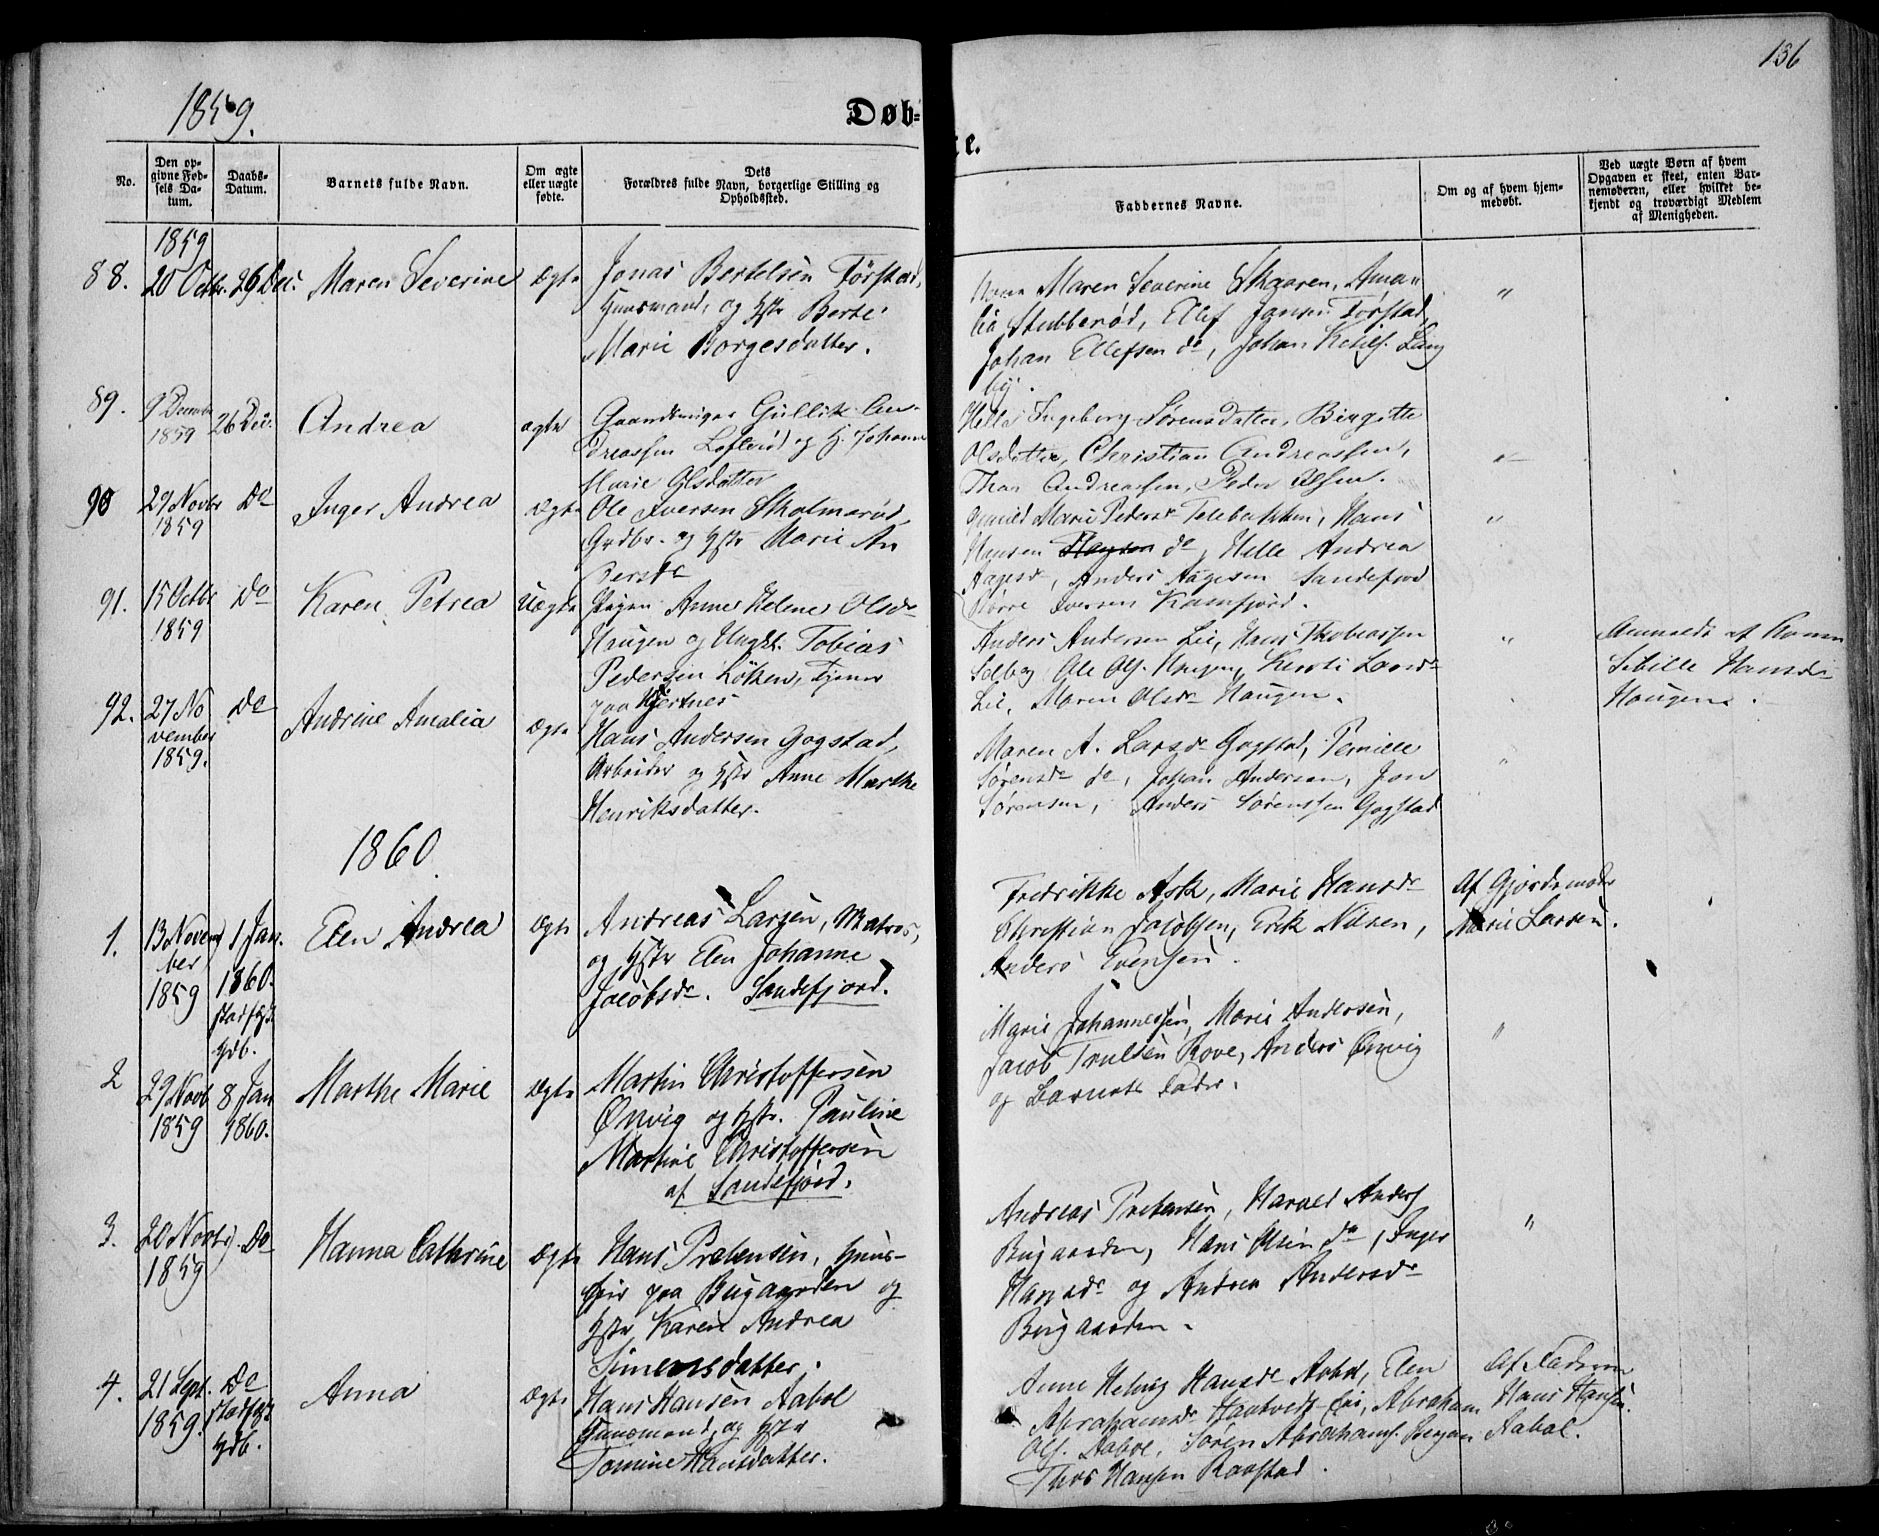 136
1859.
Døb-
te.
No.
Den op-
givne Fød-
sels Da-
tum.
Daabs-
Datum.
Barnets fulde Navn.
Om ægte
eller uægte
fødte.
Dets
Forældres fulde Navn, borgerlige Stilling og
Opholdssted.
Faddernes Navne.
Om og af hvem hjem-
medøbt.
Ved uægte Børn af hvem
Opgaven er skeet, enten Bar-
nemoderen, eller hvilket be-
kjendt og troværdigt Medlem
af Menigheden.
88.
1859
20 Octbr.
26 Dec.
Maren Severine
Ægte
Jonas Bertelsen Førstad,
Huusmand, og Hstr Berte
Marie Borgesdatter.
Maren Severine Skaaren, Ama-
lia Stubberød, Ellef Jansen Førstad,
Johan Ellefsen do, Johan Ketils. Lang
by.
"
89.
9 Decembr
1859
26 Dec.
Andrea
ægte
Gaardbruger Gullik An-
dreassen Løflerød og H. Johanne
Marie Olsdatter
Helle Ingeborg Sørensdatter, Birgitte
Olsdatter, Christian Andreassen,
Thor Andreassen, Peder Olsen.
"
90
29 Novbr
1859
Do
Inger Andrea
Ægte
Ole Iversen Skolmerød,
Grdbr. og Hstr Marie An
dersdr
Marie Pedersdr Telebakken, Hans
Hansen Haugen do, Helle Andrea
Aagesdr, Anders Aagesen Sandefjord
Sørre Iversen Kamfjord.
"
91.
15 Octbr
1859
Do
Karen Petrea
Uægte
Pigen Anne Helene Olsdr
Haugen og Ungk. Tobias
Pedersen Løken, Tjener
paa Hjertnes
Anders Andersen Lie, Hans Thobiassen
Solberg, Ole Ols. Haugen, Kersti Larsdr
Lie, Maren Olsdr Haugen.
"
Anmeldt af Karen
Sibille Hansdr
Haugen.
92.
27 No
vember
1859.
Do
Andrine Amalia
Ægte
Hans Andersen Gogstad,
Arbeider og Hstr Anne Marthe
Henriksdatter.
Maren A. Larsdr Gogstad, Pernille
Sørensdr do, Johan Andersen, Jon
Sørensen, Anders Sørenssen Gogstad
"
1860.
1.
13 Novem
ber
1859
1 Jan.
1860.
stadfæst
Hdb.
Elen Andrea
Ægte
Andreas Larsen, Matros,
og Hstr Elen Johanne
Jacobsdr. Sandefjord.
Fredrikke Ask, Marie Hansdr
Christian Jacobsen, Erik Nilsen,
Anders Evensen.
Af Gjordemoder
Marie Larsen.
2
29 Novb
1859
8 Jan
1860.
Marthe Marie
Ægte
Martin Christoffersen
Ørnvig og Hstr. Pauline
Martine Christoffersen
af Sandefjord.
Marie Johannessen, Marie Andersen,
Jacob Trulsen Rove, Anders Ørnvig
og Barnets Fader.
"
3.
20 Novbr
1859
Do
Hanna Cathrine
Ægte
Hans Prebensen, Huus-
eier paa Bugaarden og
Hstr Karen Andrea
Simensdatter.
Andreas Prebensen, Harald Anders
Bugaarden, Hans Olsen do, Inger
Hansdr og Andrea Andersdr
Bugaarden.
"
4.
21 Sept.
1859.
Do
stadfæst
Hdb.
Anna
Ægte
Hans Hansen Aabol
Huusmand, og Hstr
Tomine Hansdatter.
Anne Helvig Hansdr Aabol, Elen
Abrahamsdr Haukvedt-Eie, Abraham
Ols. Aabol, Søren Abrahams. Bergan
Thor Hansen Raastad.
Af Faderen
Hans Hansen
Aabol.